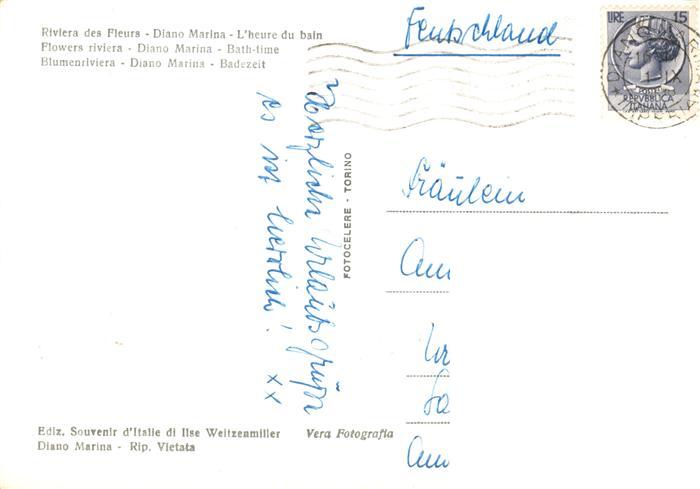 Riviera des Fleurs - Diano Marina - L'heure du bain
Flowers riviera - Diano Marina - Bath-time
Blumenriviera - Diano Marina - Badezeit
Deutschland
LIRE 15
POSTE
REPVBBLICA
ITALIANA
Herzliche Urlaubsgrüße
es ist herrlich!
xx
FOTOCELERE - TORINO
Fräulein
Am
Ediz. Souvenir d'Italie di Ilse Weitzenmiller
Diano Marina - Rip. Vietata
Vera Fotografia
Am